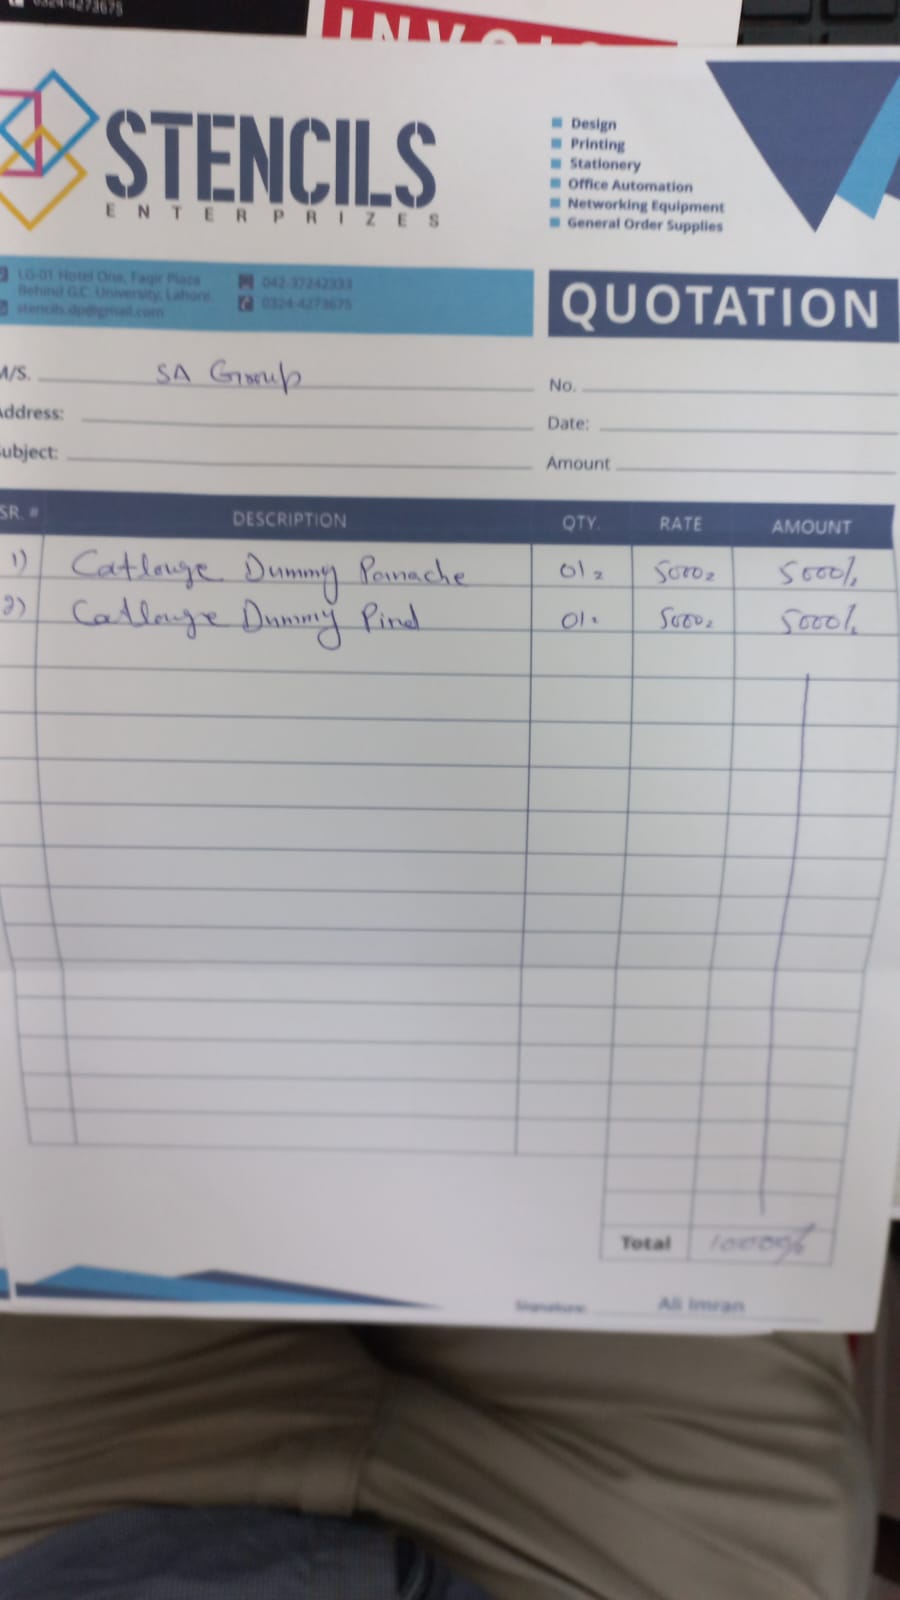 0324-4273675
STENCILS
ENTERPRIZES
Design
Printing
Stationery
Office Automation
Networking Equipment
General Order Supplies
LG-01 Hotel One, Faqir Plaza
Behind G.C. University, Lahore.
stencils.dp@gmail.com
042-37242333
0324-4273675
QUOTATION
M/S. SA Group
No.
Address:
Date:
Subject:
Amount
SR. # DESCRIPTION QTY. RATE AMOUNT
1) Catlouge Dummy Panache 01 5000 5000/
2) Catlouge Dummy Pind 01 5000 5000/
Total 10000/
Signature: Ali Imran